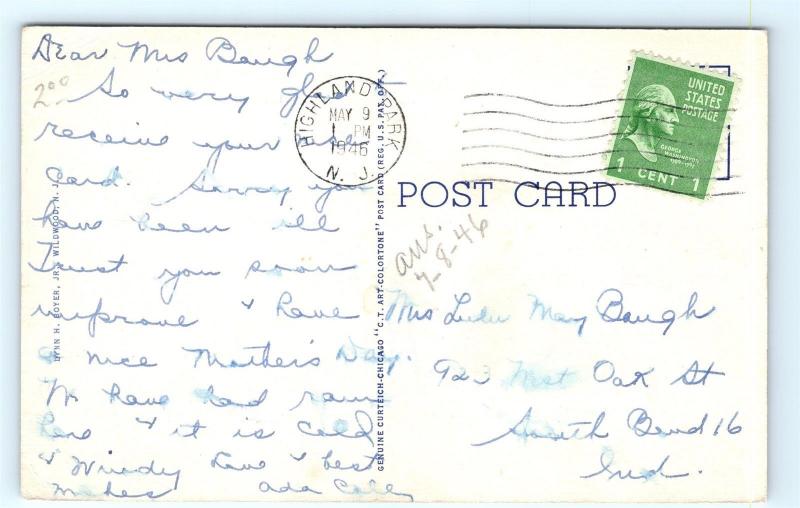 Dear Mrs Baugh
2.00
So very glad
receive your
Card. Sorry you
have been ill
Trust you soon
improve & have
a nice Mother's Day.
We have had rain
here & it is cold
& Windy Love & best
wishes Ada
HIGHLAND PARK
MAY 9
1 PM
1946
N. J.
UNITED
STATES
POSTAGE
GEORGE
WASHINGTON
1789-1797
1 CENT 1
POST CARD
ans.
7-8-46
Mrs Lulu May Baugh
923 West Oak St
South Bend 16
Ind.
LYNN H. BOYER, JR., WILDWOOD, N. J.
GENUINE CURTEICH-CHICAGO "C.T. ART-COLORTONE" POST CARD (REG. U.S. PAT. OFF.)